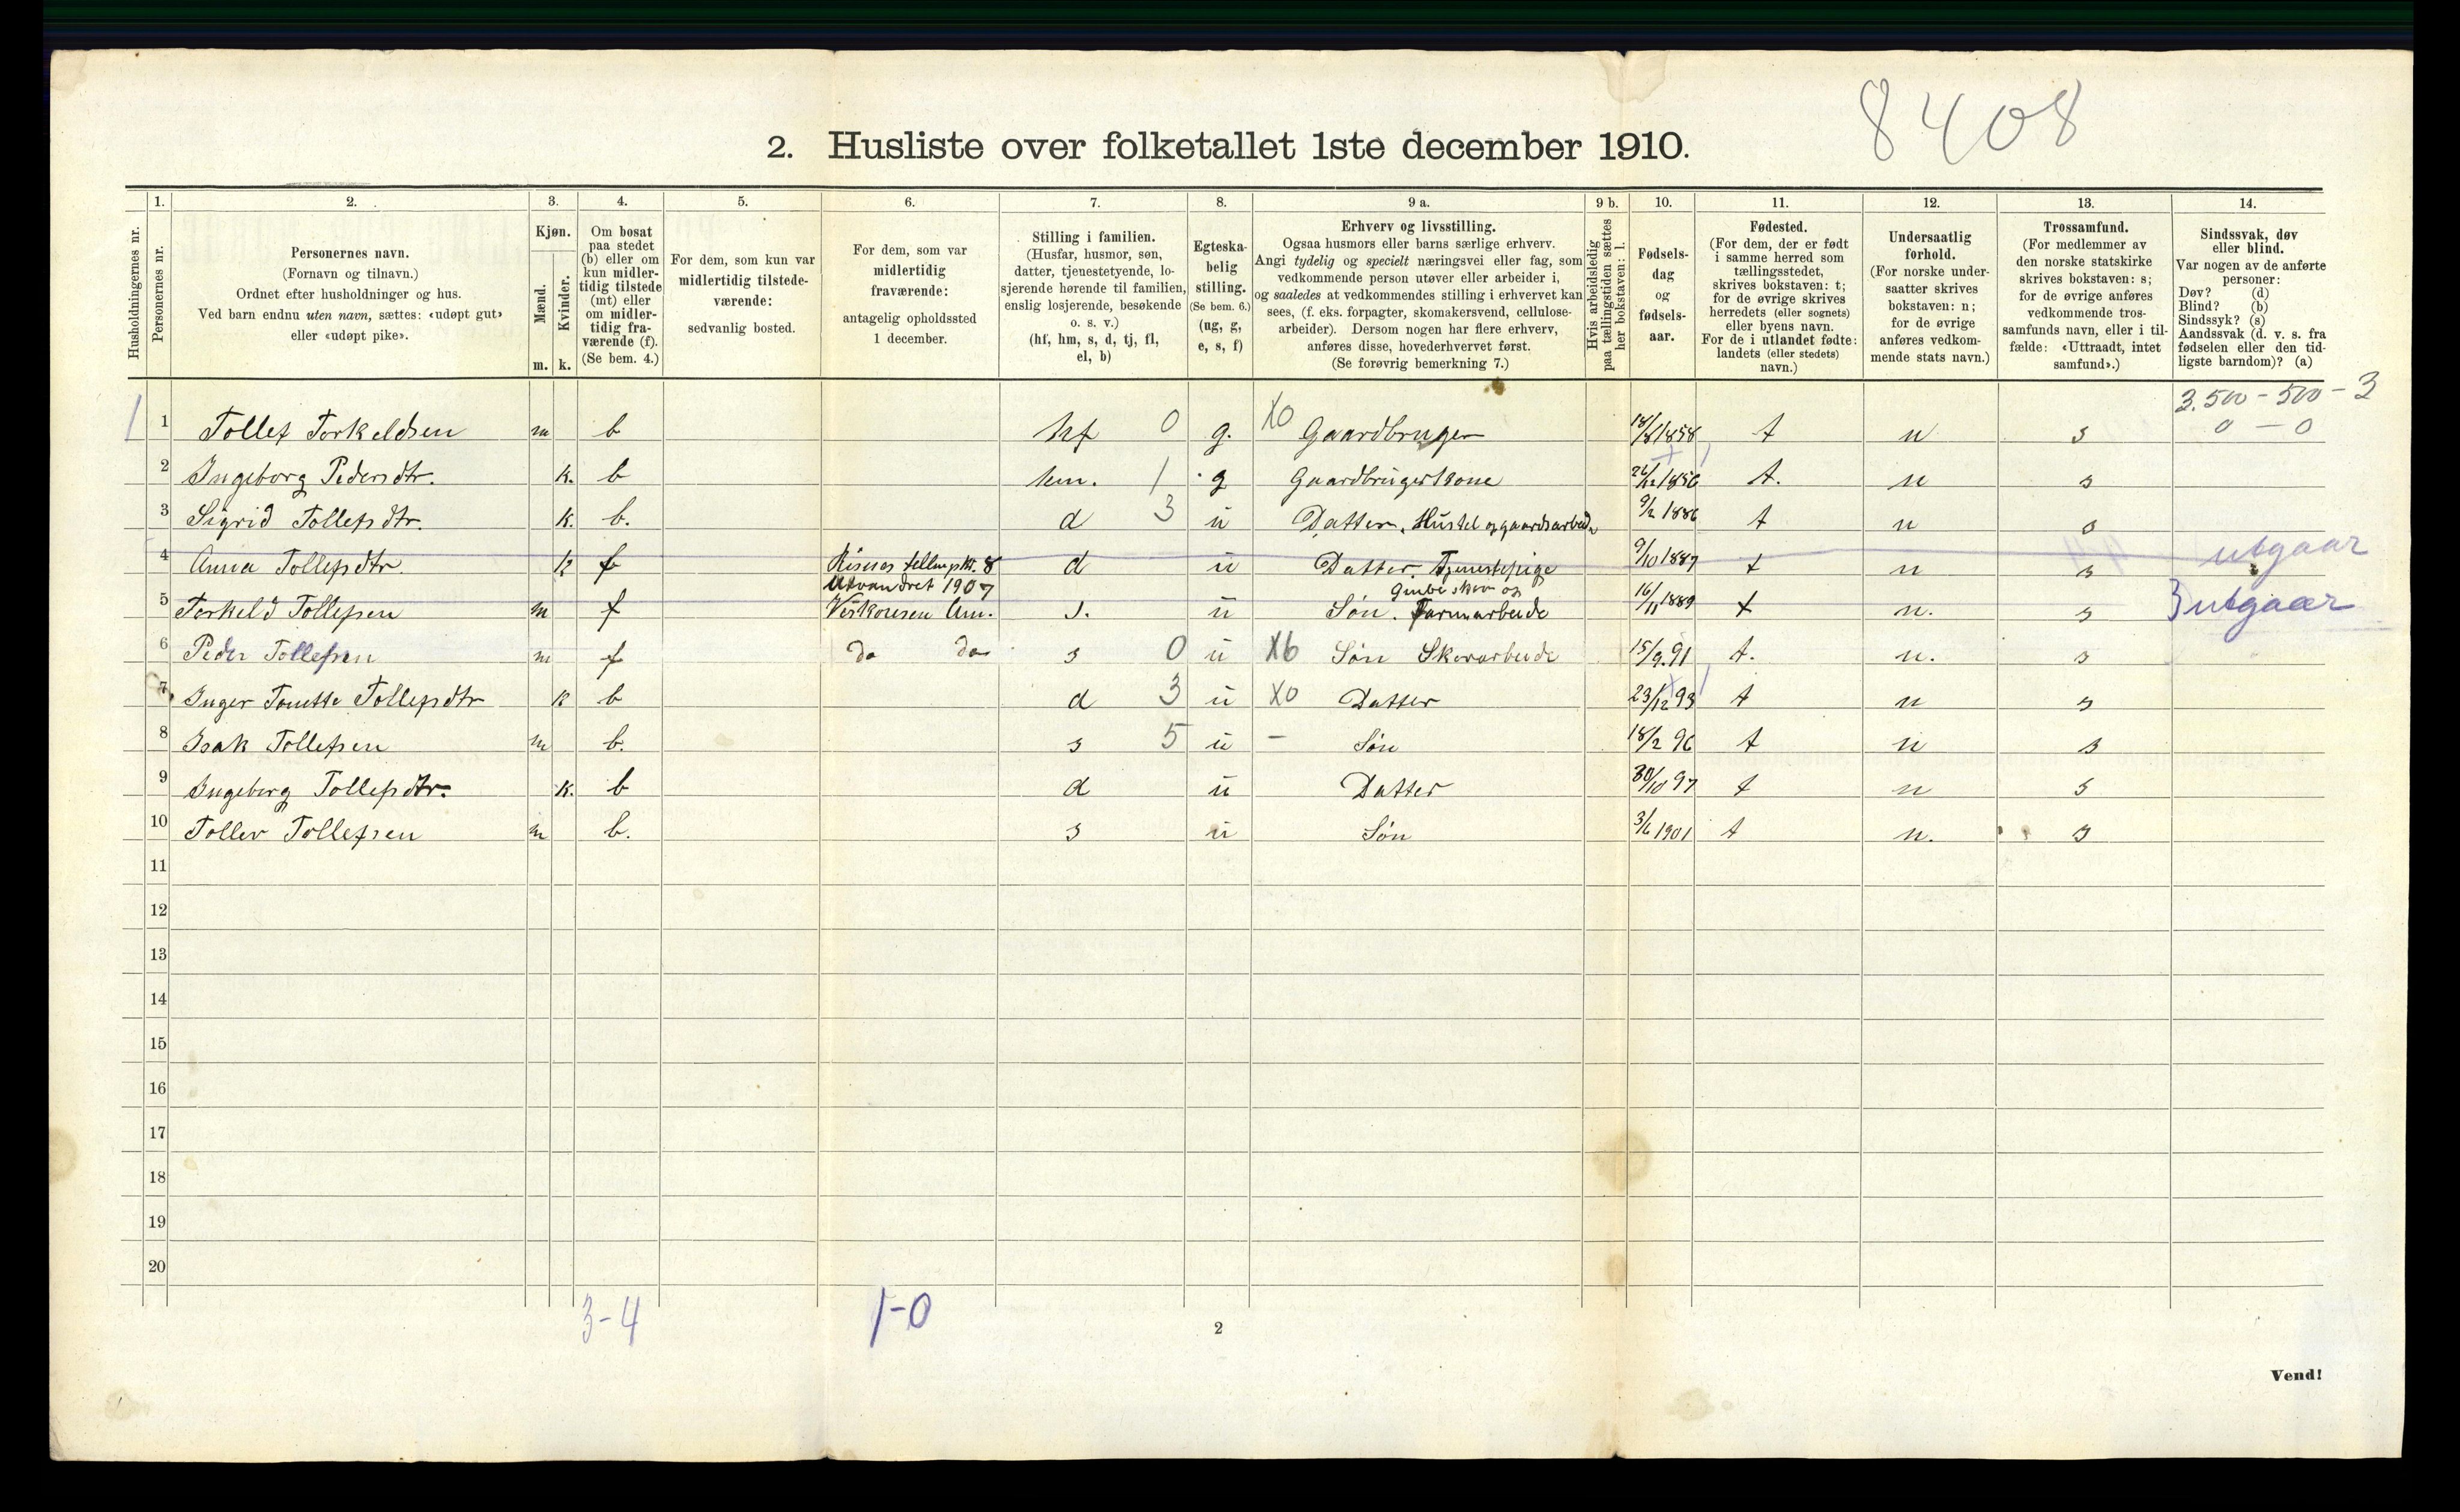 8408
2. Husliste over folketallet 1ste december 1910.
Husholdningernes nr.
1.
Personernes nr.
2.
Personernes navn.
(Fornavn og tilnavn.)
Ordnet efter husholdninger og hus.
Ved barn endnu uten navn, sættes: «udøpt gut»
eller «udøpt pike».
3.
Kjøn.
Mænd.
Kvinder.
m. k.
4.
Om bosat
paa stedet
(b) eller om
kun midler-
tidig tilstede
(mt) eller
om midler-
tidig fra-
værende (f).
(Se bem. 4.)
5.
For dem, som kun var
midlertidig tilstede-
værende:
sedvanlig bosted.
6.
For dem, som var
midlertidig
fraværende:
antagelig opholdssted
1 december.
7.
Stilling i familien.
(Husfar, husmor, søn,
datter, tjenestetyende, lo-
sjerende hørende til familien,
enslig losjerende, besøkende
o. s. v.)
(hf, hm, s, d, tj, fl,
el, b)
8.
Egteska-
belig
stilling.
(Se bem. 6.)
(ug, g,
e, s, f)
9 a.
Erhverv og livsstilling.
Ogsaa husmors eller barns særlige erhverv.
Angi tydelig og specielt næringsvei eller fag, som
vedkommende person utøver eller arbeider i,
og saaledes at vedkommendes stilling i erhvervet kan
sees, (f. eks. forpagter, skomakersvend, cellulose-
arbeider). Dersom nogen har flere erhverv,
anføres disse, hovederhvervet først.
(Se forøvrig bemerkning 7.)
9 b.
Hvis arbeidsledig
paa tællingstiden sættes
her bokstaven: l.
10.
Fødsels-
dag
og
fødsels-
aar.
11.
Fødested.
(For dem, der er født
i samme herred som
tællingsstedet,
skrives bokstaven: t;
for de øvrige skrives
herredets (eller sognets)
eller byens navn.
For de i utlandet fødte:
landets (eller stedets)
navn.)
12.
Undersaatlig
forhold.
(For norske under-
saatter skrives
bokstaven: n;
for de øvrige
anføres vedkom-
mende stats navn.)
13.
Trossamfund.
(For medlemmer av
den norske statskirke
skrives bokstaven: s;
for de øvrige anføres
vedkommende tros-
samfunds navn, eller i til-
fælde: «Uttraadt, intet
samfund».)
14.
Sindssvak, døv
eller blind.
Var nogen av de anførte
personer:
Døv? (d)
Blind? (b)
Sindssyk? (s)
Aandssvak (d. v. s. fra
fødselen eller den tid-
ligste barndom)? (a)
3.500 - 500 - 3
1 1 Tollef Torkeldsen m b hf 0 g. X0 Gaardbruger 18/8 1858 t n s 0 - 0
2 Ingeborg Pedersdtr. k. b hm. 1 g Gaardbrugerkone 26/12 1856 t. n s
3 Sigrid Tollefsdtr. k. b. d 3 u Datter. Hustel og gaardsarbeide 9/2 1886 t n s
4 Anna Tollefsdtr. k f Risnes tellingskr. 8 d u Datter. Tjenestepige 9/10 1887 t n s utgaar
Utvandret 1907 Grube skov og
5 Torkeld Tollefsen m f Viskonsen Am. s. u Søn. Farmarbeide 16/11 1889 t n. s 3 utgaar
6 Peder Tollefsen m f do do s 0 u X6 Søn Skovarbeide 15/9. 91 t. n. s
7 Inger Tonette Tollefsdtr k b d 3 u X0 Datter 23/12 93 t n s
8 Isak Tollefsen m b. s 5 u - Søn 18/2 96 t n s
9 Ingeborg Tollefsdtr. k. b d u Datter 30/10 97 t n s
10 Tollev Tollefsen m b. s u Søn 3/6 1901 t n. s
11
12
13
14
15
16
17
18
19
20
3-4 1-0
2
Vend!